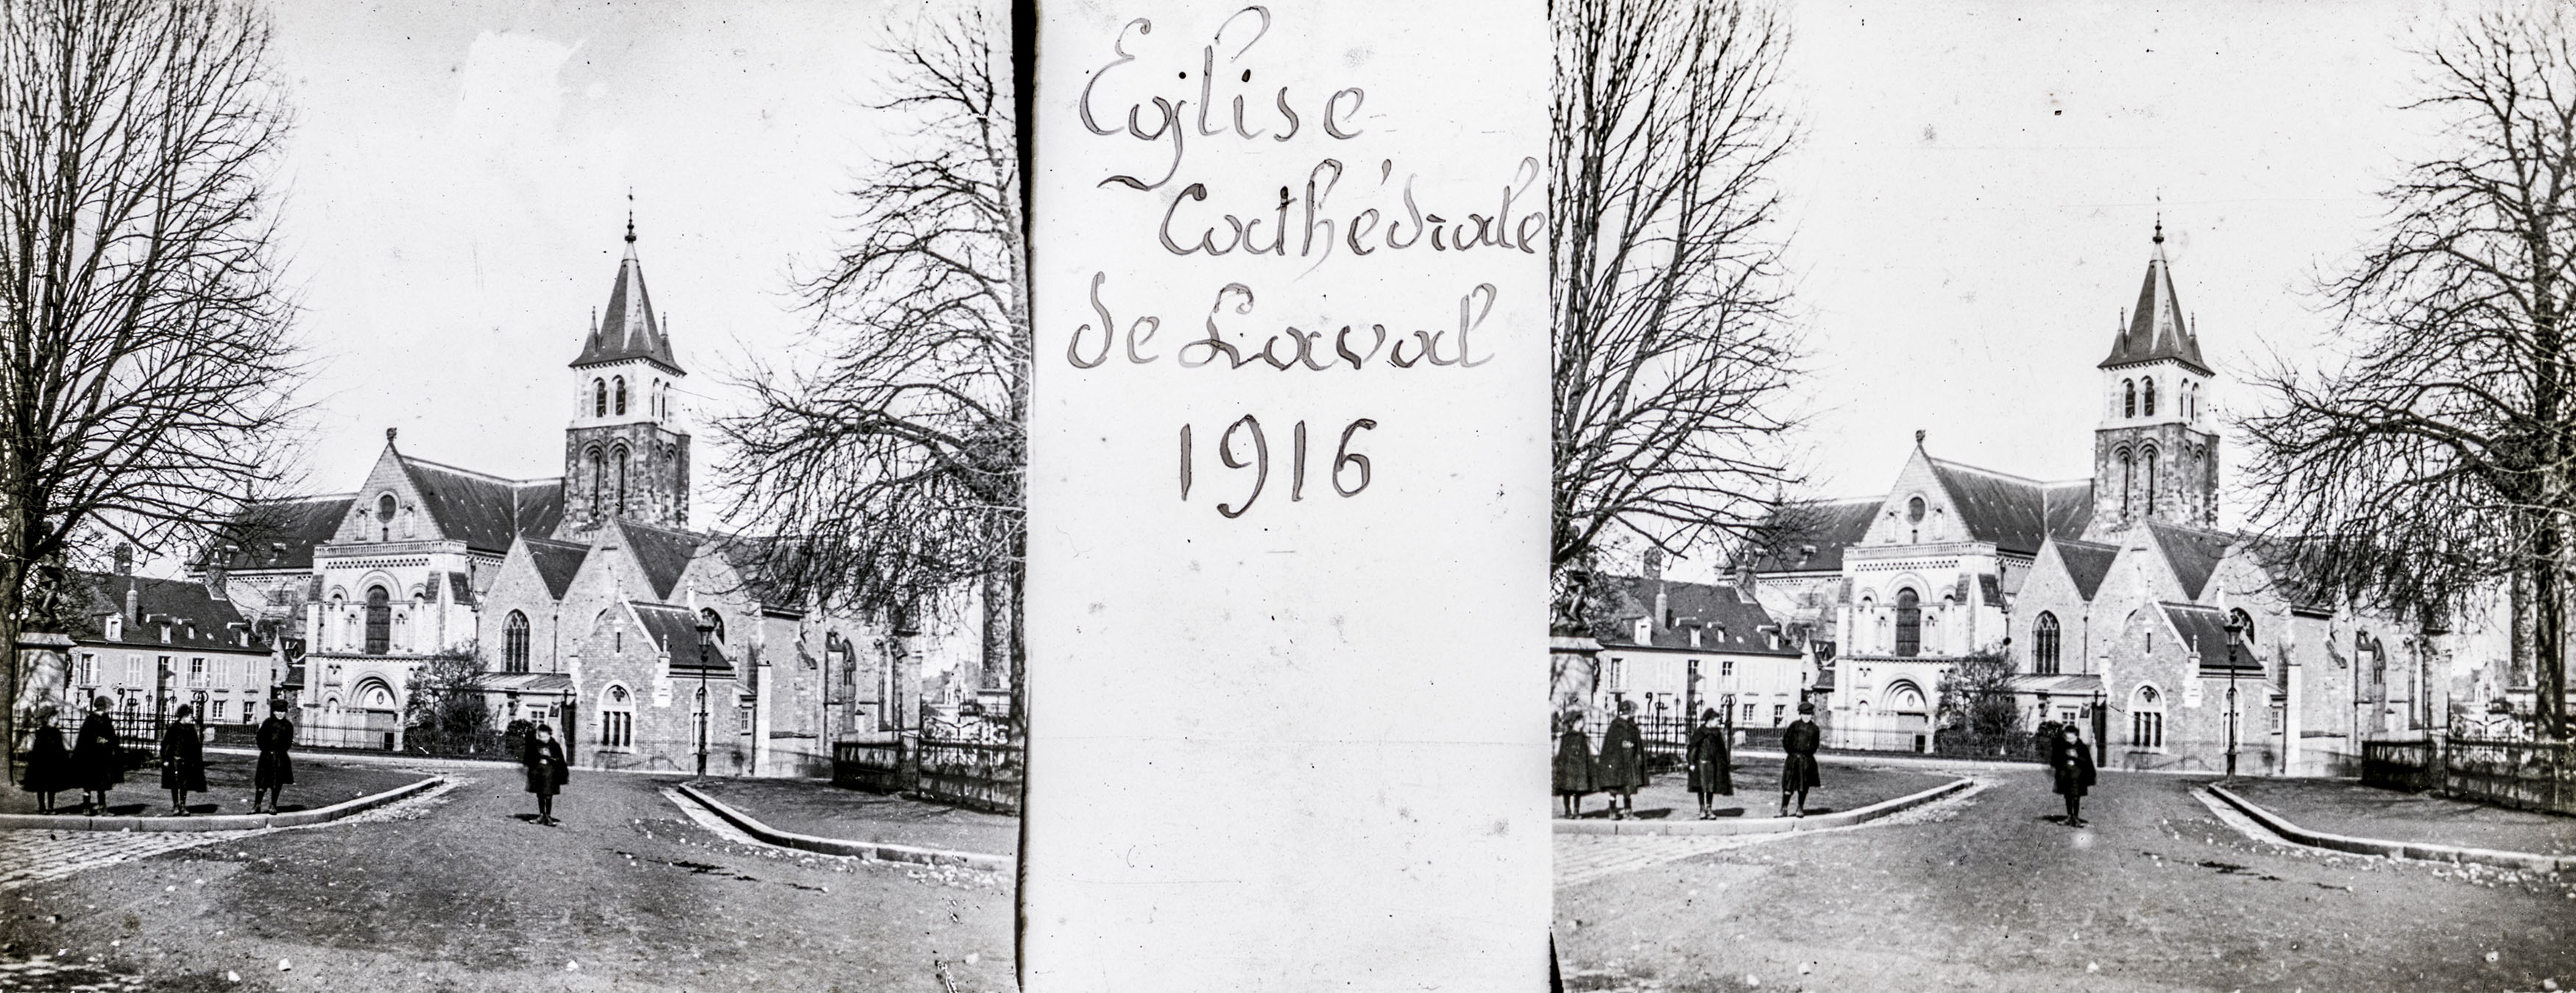 Eglise
Cathédrale
de Laval
1916